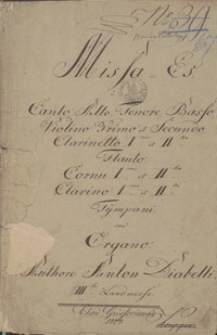 No 39
Missa Es
Canto Alto Tenore Basso
Violino Primo et Secundo
Clarinetto Imo et IIdo
Flauto
Cornu Imo et IIdo
Clarino Imo et IIdo
Tympani
Organo
Authore Anton Diabelli
IIIte Landmesse